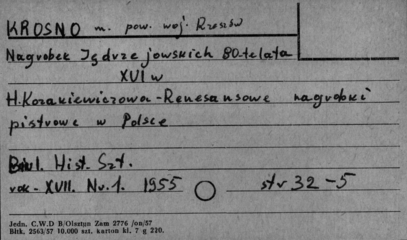 KROSNO m. pow. woj. Rzeszów
Nagrobek Jędrzejowskich 80-te lata
XVI w
H. Kozakiewiczowa - Renesansowe nagrobki
pistrowe w Polsce
Biul. Hist. Szt.
rok - XVII. Nr. 1. 1955 str 32-5
Jedn. C.W.D B/Olsztyn Zam 2776 /on/57
Bltk. 2563/57 10.000 szt. karton kl. 7 g 220.